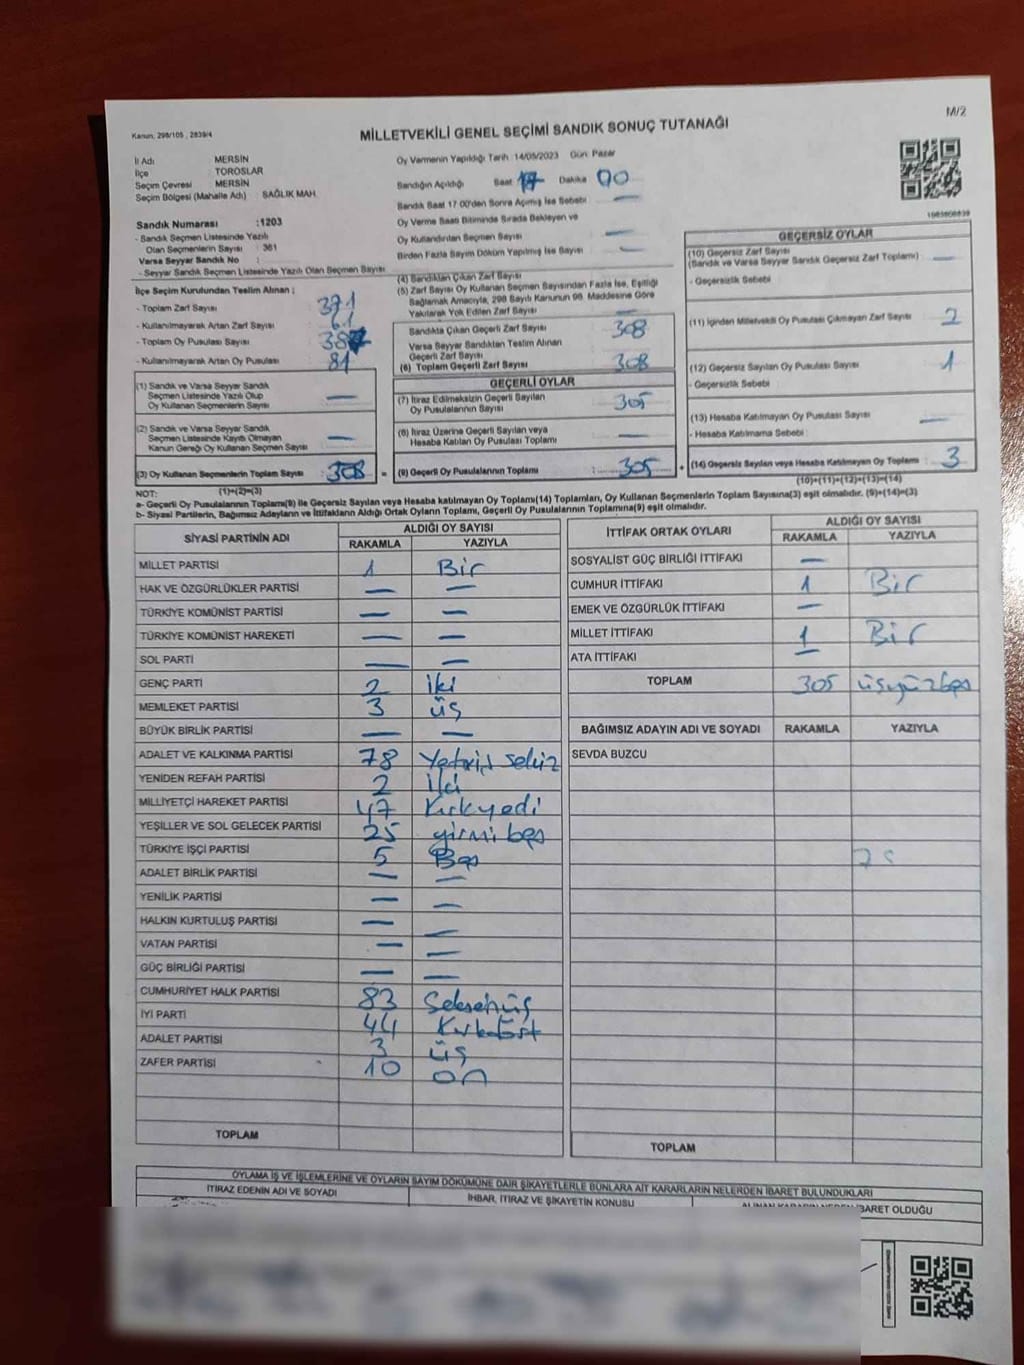 M/2
Kanun, 298/105 , 2839/4
MİLLETVEKİLİ GENEL SEÇİMİ SANDIK SONUÇ TUTANAĞI
İl Adı : MERSİN
İlçe : TOROSLAR
Seçim Çevresi : MERSİN
Seçim Bölgesi (Mahalle Adı) : SAĞLIK MAH.
Sandık Numarası :1203
- Sandık Seçmen Listesinde Yazılı
Olan Seçmenlerin Sayısı : 361
Varsa Seyyar Sandık No :
- Seyyar Sandık Seçmen Listesinde Yazılı Olan Seçmen Sayısı
İlçe Seçim Kurulundan Teslim Alınan :
- Toplam Zarf Sayısı
- Kullanılmayarak Artan Zarf Sayısı : 61
- Toplam Oy Pusulası Sayısı
- Kullanılmayarak Artan Oy Pusulası : 81
(1) Sandık ve Varsa Seyyar Sandık
Seçmen Listesinde Yazılı Olup
Oy Kullanan Seçmenlerin Sayısı : —
(2) Sandık ve Varsa Seyyar Sandık
Seçmen Listesinde Kayıtlı Olmayan
Kanun Gereği Oy Kullanan Seçmen Sayısı : —
(3) Oy Kullanan Seçmenlerin Toplam Sayısı : 308 =
(1)+(2)=(3)
Oy Vermenin Yapıldığı Tarih :14/05/2023 Gün: Pazar
Sandığın Açıldığı Saat 17 Dakika 00
Sandık Saat 17:00'den Sonra Açılmış İse Sebebi : —
Oy Verme Saati Bitiminde Sırada Bekleyen ve
Oy Kullandırılan Seçmen Sayısı : —
Birden Fazla Sayım Döküm Yapılmış İse Sayısı : —
(4) Sandıktan Çıkan Zarf Sayısı
(5) Zarf Sayısı Oy Kullanan Seçmen Sayısından Fazla İse, Eşitliği
Sağlamak Amacıyla, 298 Sayılı Kanunun 98. Maddesine Göre
Yakılarak Yok Edilen Zarf Sayısı : —
Sandıkta Çıkan Geçerli Zarf Sayısı : 308
Varsa Seyyar Sandıktan Teslim Alınan
Geçerli Zarf Sayısı
(6) Toplam Geçerli Zarf Sayısı : 308
GEÇERLİ OYLAR
(7) İtiraz Edilmeksizin Geçerli Sayılan
Oy Pusulalarının Sayısı : 305
(8) İtiraz Üzerine Geçerli Sayılan veya
Hesaba Katılan Oy Pusulası Toplamı : —
(9) Geçerli Oy Pusulalarının Toplamı : 305 +
GEÇERSİZ OYLAR
(10) Geçersiz Zarf Sayısı
(Sandık ve Varsa Seyyar Sandık Geçersiz Zarf Toplamı) : —
- Geçersizlik Sebebi :
(11) İçinden Milletvekili Oy Pusulası Çıkmayan Zarf Sayısı : 2
(12) Geçersiz Sayılan Oy Pusulası Sayısı : 1
- Geçersizlik Sebebi :
(13) Hesaba Katılmayan Oy Pusulası Sayısı : —
- Hesaba Katılmama Sebebi :
(14) Geçersiz Sayılan veya Hesaba Katılmayan Oy Toplamı : 3
(10)+(11)+(12)+(13)=(14)
NOT:
a- Geçerli Oy Pusulalarının Toplamı(9) ile Geçersiz Sayılan veya Hesaba katılmayan Oy Toplamı(14) Toplamları, Oy Kullanan Seçmenlerin Toplam Sayısına(3) eşit olmalıdır. (9)+(14)=(3)
b- Siyasi Partilerin, Bağımsız Adayların ve İttifakların Aldığı Ortak Oyların Toplamı, Geçerli Oy Pusulalarının Toplamına(9) eşit olmalıdır.
SİYASİ PARTİNİN ADI ALDIĞI OY SAYISI
RAKAMLA YAZIYLA
MİLLET PARTİSİ 1 Bir
HAK VE ÖZGÜRLÜKLER PARTİSİ — —
TÜRKİYE KOMÜNİST PARTİSİ — —
TÜRKİYE KOMÜNİST HAREKETİ — —
SOL PARTİ — —
GENÇ PARTİ 2 iki
MEMLEKET PARTİSİ 3 üç
BÜYÜK BİRLİK PARTİSİ — —
ADALET VE KALKINMA PARTİSİ 78 Yetmiş sekiz
YENİDEN REFAH PARTİSİ 2 iki
MİLLİYETÇİ HAREKET PARTİSİ 47 Kırkyedi
YEŞİLLER VE SOL GELECEK PARTİSİ 25 yirmi beş
TÜRKİYE İŞÇİ PARTİSİ 5 Beş
ADALET BİRLİK PARTİSİ — —
YENİLİK PARTİSİ — —
HALKIN KURTULUŞ PARTİSİ — —
VATAN PARTİSİ — —
GÜÇ BİRLİĞİ PARTİSİ — —
CUMHURİYET HALK PARTİSİ 83 Seksenüç
İYİ PARTİ 44 Kırkdört
ADALET PARTİSİ 3 üç
ZAFER PARTİSİ 10 on
TOPLAM
İTTİFAK ORTAK OYLARI ALDIĞI OY SAYISI
RAKAMLA YAZIYLA
SOSYALİST GÜÇ BİRLİĞİ İTTİFAKI —
CUMHUR İTTİFAKI 1 Bir
EMEK VE ÖZGÜRLÜK İTTİFAKI —
MİLLET İTTİFAKI 1 Bir
ATA İTTİFAKI —
TOPLAM 305 üçyüzbeş
BAĞIMSIZ ADAYIN ADI VE SOYADI RAKAMLA YAZIYLA
SEVDA BUZCU
TOPLAM
OYLAMA İŞ VE İŞLEMLERİNE VE OYLARIN SAYIM DÖKÜMÜNE DAİR ŞİKAYETLERLE BUNLARA AİT KARARLARIN NELERDEN İBARET BULUNDUKLARI
İTİRAZ EDENİN ADI VE SOYADI İHBAR, İTİRAZ VE ŞİKAYETİN KONUSU ALINAN KARARIN NEDEN İBARET OLDUĞU